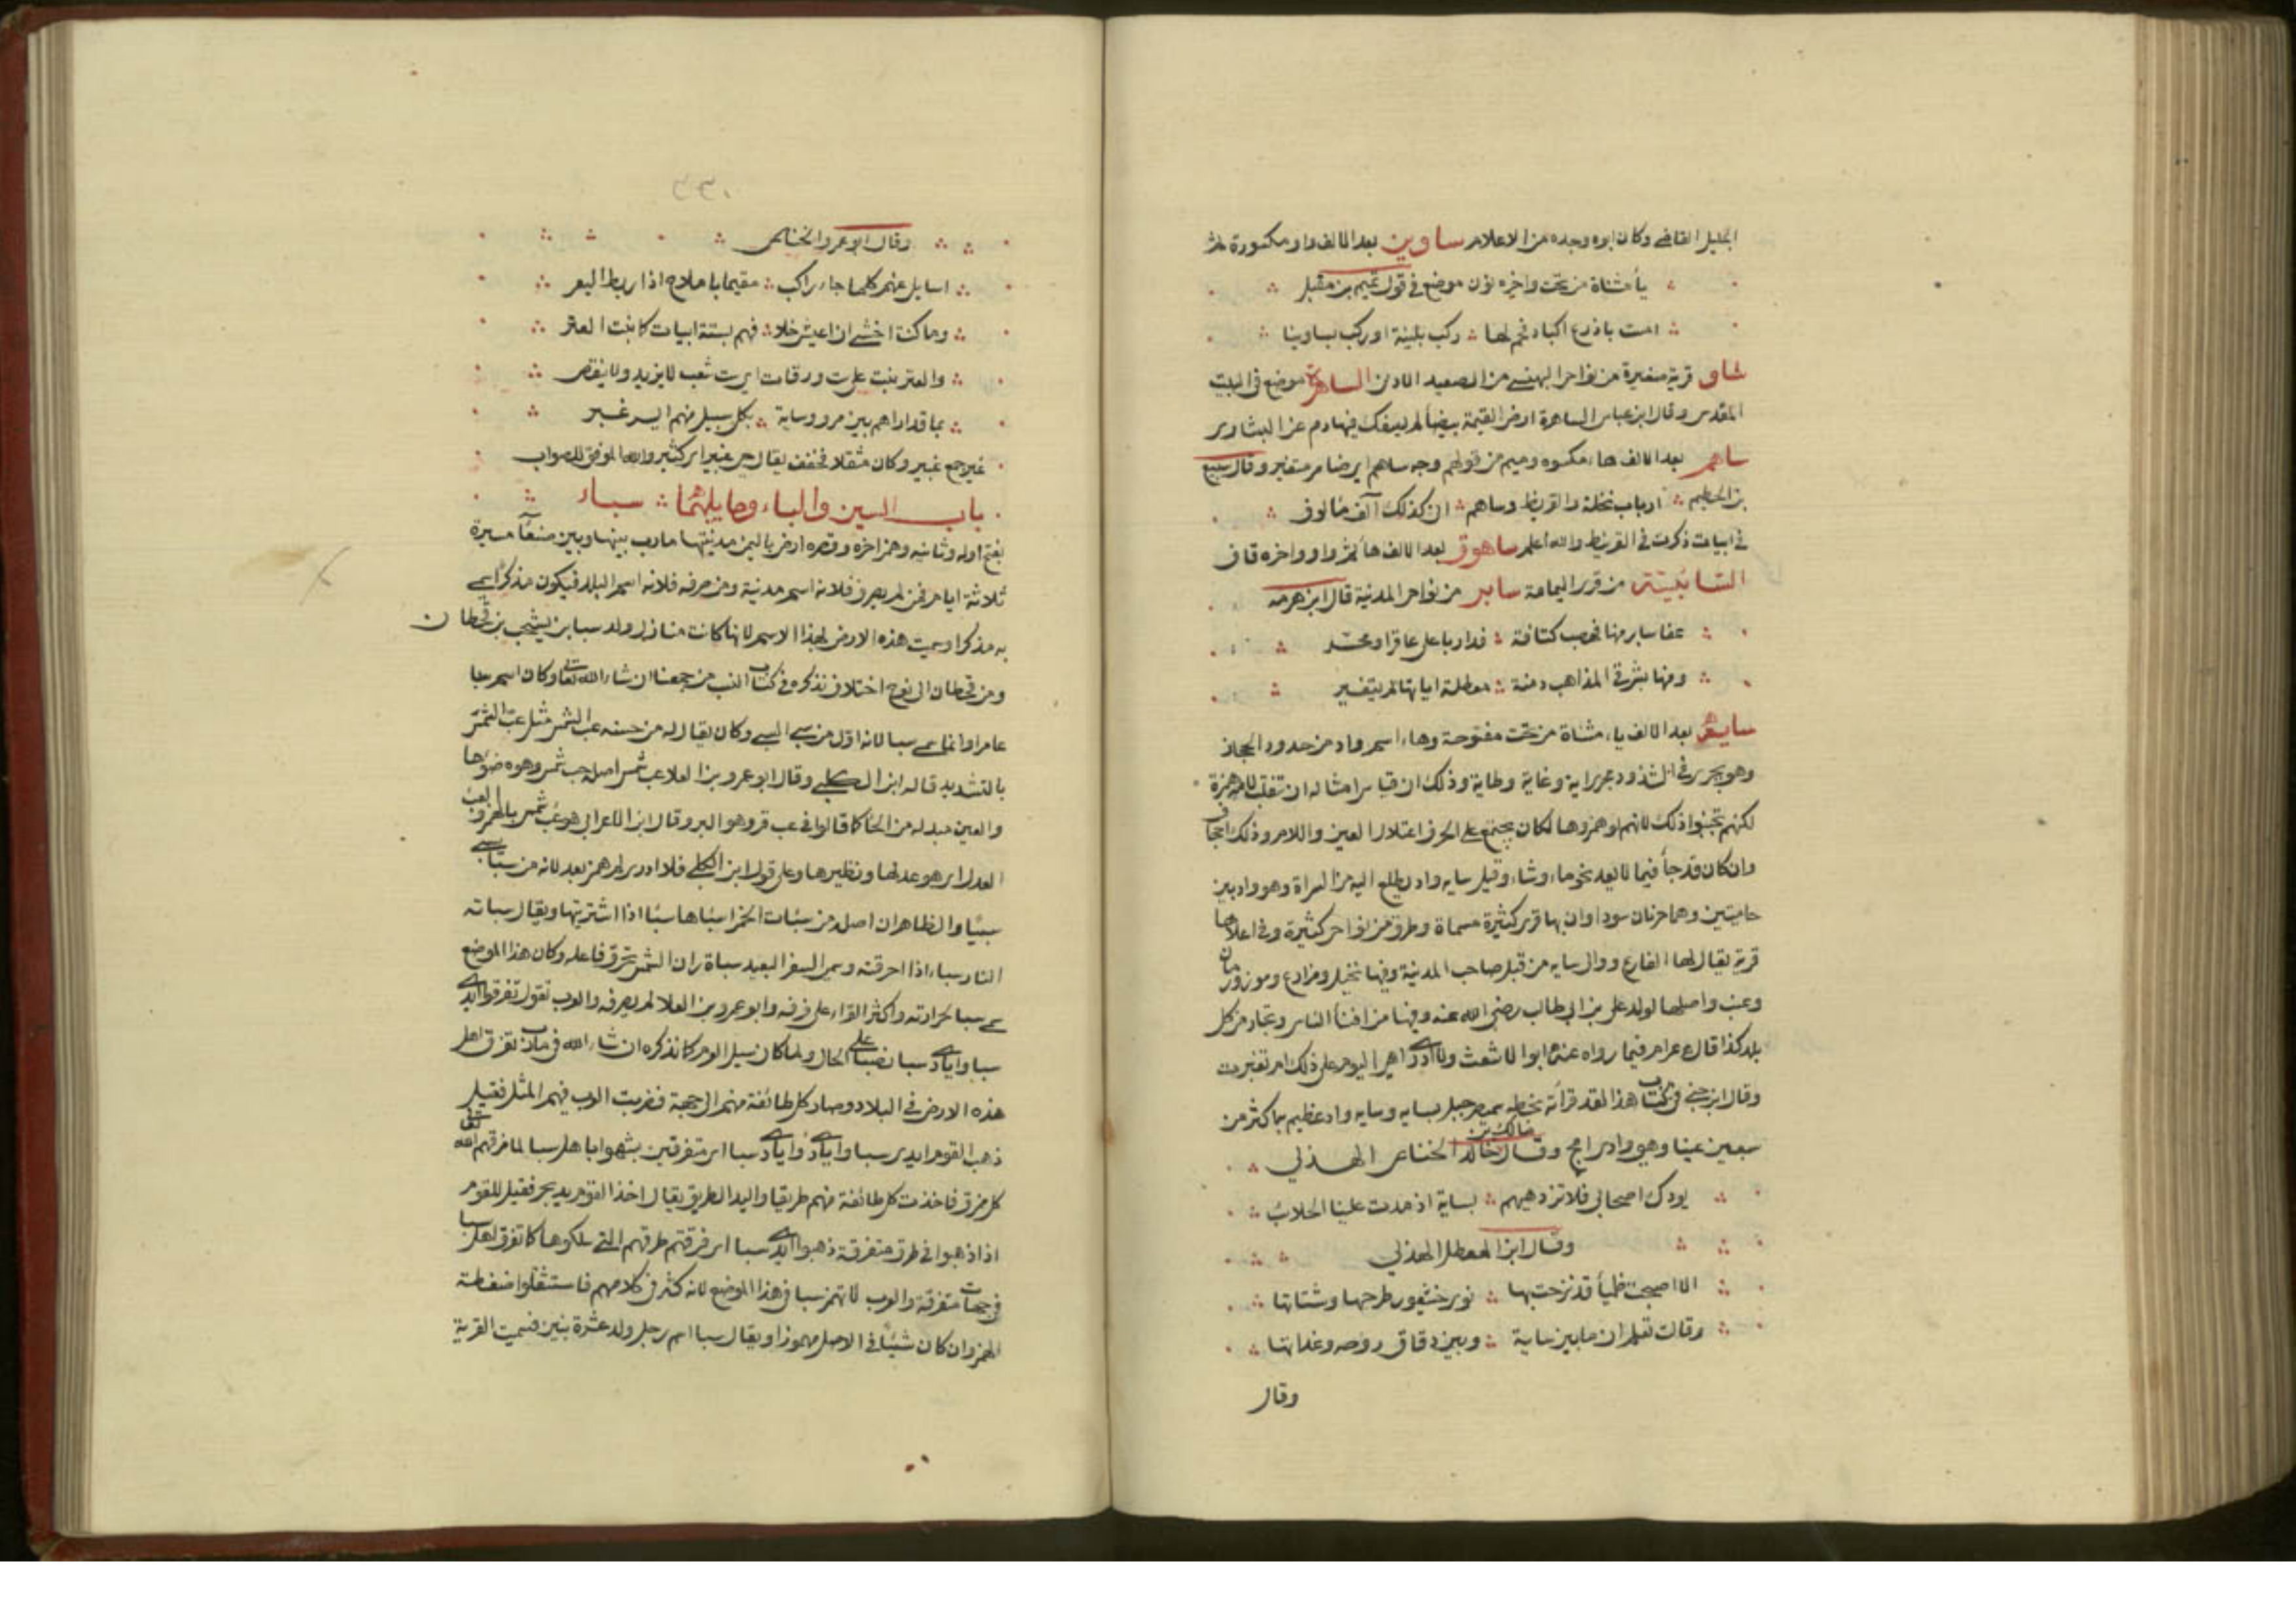 الجليل القاضي وكان ابوه وجده من الاعلام ساوين بعد الالف واو مكسورة ثم
ياء مثناة من تحت واخره نون موضع في قول تميم بن مقبل
امست باذرع اكباد فحم لها ركب بلينة او ركب بساوينا
شاو قرية صغيرة من نواحى البهنسى من الصعيد الادنى الساهرة موضع في البيت
المقدس وقال ابن عباس الساهرة ارض القيمة بيضأ لم يسفك فيها دم عن البشارى
ساهم بعد الالف هاء مكسوه وميم من قولهم وجه ساهم اى ضامر متغير وقال سبيع
بن الخطيم ارباب نخلة والقريظ وساهم ان كذلك آلف مألوف
في ابيات ذكرت في القريظ والله اعلم ساهوق بعد الالف هأ ثم واو واخره قاف
السائبة من قرى اليمامة ساير من نواحى المدنية قال ابن هرمه
عفا ساير منها فهضب كتافة فدار باعلى عاقر او محسّر
ومنها بشرقى المذاهب دمنة معطلة اياتها لم يتغير
ساية بعد الالف ياء مثناة من تحت مفتوحة وهاء اسم واد من حدود الحجاز
وهو يجرى في الشذوذ مجرى اية وغاية وطاية وذلك ان قياس امثاله ان تنقلب لامه همزة
لكنهم تجنبوا ذلك لانهم لو همزوها لكان يجتمع على الحرف اعتلال العين واللام وذلك اجحاف
وان كان قد جأ فيما لا يعد نحو ماء وشاء وقيل سايه واد يطلع اليه من السراة وهو واد بين
حاميتين وهما حرتان سوداوان بها قرى كثيرة مسماة وطرق من نواحى كثيرة وفي اعلاها
قرية يقال لها الفارع ووالى سايه من قبل صاحب المدنية وفيها نخيل ومزارع وموز ورمان
وعنب واصلها لولد على بن ابي طالب رضى الله عنه وفيها من افنأ الناس وتجار من كل
بلد كذا قال عرام فيما رواه عنه ابوا لاشعث ولا ادرى اهى اليوم على ذلك ام تغيرت
وقال ابن جنى في كتاب هذا لقد قرأته بخطه جبل بسايه وسايه واد عظيم به اكثر من
سبعين عينا وهو وادى امج وقال مالك بن خالد الخناعى الهذلي
بودك اصحابي فلا تزدهيهم بساية اذ مدت علينا الحلائب
وقال ابن المعطل الهذلي
الا اصبحت ظميأ قد نزحت بها نوى خيثعور طرحها وشتاتها
وقالت تعلم ان ما بين ساية وبين دقاق روحه وغداتها
وقال
وقال ابو عمرو الخناعى
اسايل عنهم كلما جاء راكب مقيما باملاح اذا ربط اليعر
وما كنت اخشى ان اعيش خلافهم بستة ابيات كما نبت العتر
والعتر ينبت على ست ورقات اى ست شعب لا يزيد ولا ينقص
بما قد اراهم بين مر وساية بكل سبيل منهم انس غبر
غبر جمع غبير وكان مثقلا فخفف يقال حى غبير اى كثير والله الموفق للصواب
باب السين والباء وما يليهما سباء
بفتح اوله وثانيه وهمز اخره وقصره ارض باليمن مدينتها مارب بينها وبين صنعآ مسيرة
ثلاثة ايام فمن لم يصرف فلانه اسم مدينة ومن صرفه فلانه اسم البلد فيكون مذكرا سمى
به مذكر وسميت هذه الارض بهذا الاسم لانها كانت منازل ولد سبا بن يشجب بن قحطان
ومن قحطان الى نوح اختلاف نذكره في كتاب النسب من جمعنا ان شاء الله تعالى وكان اسم سبا
عامر وانما سمى سبا لانه اول من سبى السبى وكان يقال له من حسنه عب الشمس مثل عب الشمس
بالتشديد قاله ابن الكلبي وقال ابو عمرو بن العلا عب شمس اصله حب شمس وهو ضوها
والعين مبدله من الحأ كما قالوا في عب قر وهو البرد وقال ابن الاعرابي هو عب شمس بالهمز والعب
العدل اى هو عدلها ونظيرها وعلى قول ابن الكلبي فلا ادرى لم همز بعد لانه من سبا يسبى
سبيا والظاهر ان اصله من سبات الخمر اسباها سبا اذا اشتريتها ويقال سباته
النار سباء اذا احرقته وسمى السفر البعيد سباة لان الشمس تحرق فاعله وكان هذا الموضع
سمى سبا لحرارته واكثر القراء على صرفه وابو عمرو بن العلا لم يصرفه والعرب تقول تفرقوا ايدى
سبا وايادى سبا نصبا على الحال ولما كان سيل العرم كما نذكره ان شاء الله في مارب تفرق اهل
هذه الارض في البلاد وصار كل طائفة منهم الى جهة فضربت العرب فيهم المثل فقيل
ذهب القوم ايدى سبا وايادى وايادى سبا اى متفرقين بشهوا باهل سبا لما مزقهم الله تعالى
كل ممزق فاخذت كل طائفة منهم طريقا واليد الطريق يقال اخذ القوم يد بحر فقيل للقوم
اذا ذهبوا في طرق متفرقة ذهبوا ايدى سبا اى فرقتهم طرقهم التي سلكوها كما تفرق اهل سبا
في جهات متفرقة والعرب لا تهمز سبا في هذا الموضع لانه كثر في كلامهم فاستثقلوا ضغطة
الهمز وان كان سبأ في الاصل مهموزا ويقال سبا اسم رجل ولد عشرة بنين فسميت القرية